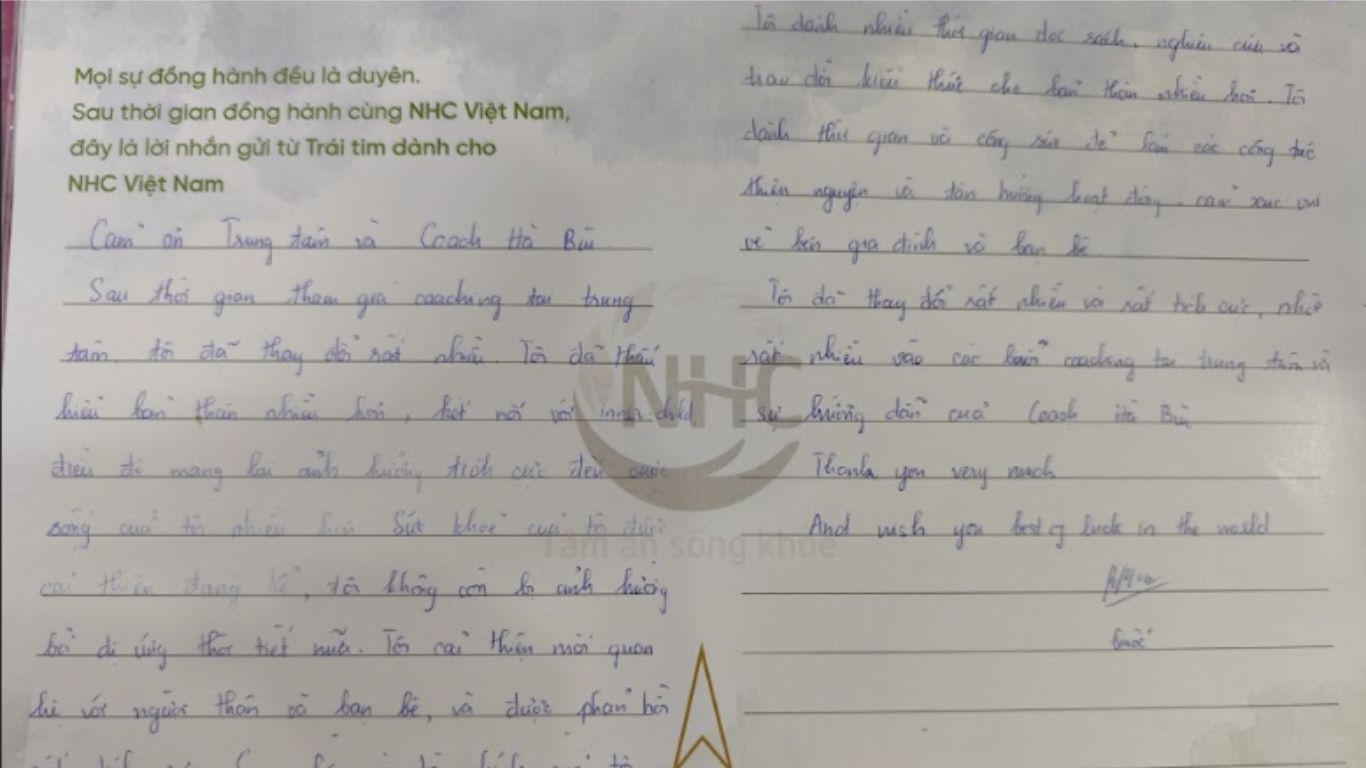 Mọi sự đồng hành đều là duyên.
Sau thời gian đồng hành cùng NHC Việt Nam,
đây là lời nhắn gửi từ Trái tim dành cho
NHC Việt Nam
Cảm ơn Trung tâm và Coach Hà Bùi
Sau thời gian tham gia coaching tại trung
tâm, tôi đã thay đổi rất nhiều. Tôi đã thấu
hiểu bản thân nhiều hơn, kết nối với inner child
điều đó mang lại ảnh hưởng tích cực đến cuộc
sống của tôi nhiều hơn. Sức khoẻ của tôi được
cải thiện đáng kể, tôi không còn bị ảnh hưởng
bởi dị ứng thời tiết nữa. Tôi cải thiện mối quan
hệ với người thân và bạn bè, và được phản hồi
Tôi dành nhiều thời gian đọc sách, nghiên cứu và
trau dồi kiến thức cho bản thân nhiều hơn. Tôi
dành thời gian và công sức để làm các công tác
thiện nguyện và tận hưởng hoạt động, cảm xúc vui
vẻ bên gia đình và bạn bè
Tôi đã thay đổi rất nhiều và rất tích cực, nhờ
rất nhiều vào các buổi coaching tại trung tâm và
sự hướng dẫn của Coach Hà Bùi
Thank you very much
And wish you best of luck in the world
NHC
Tâm an sống khỏe